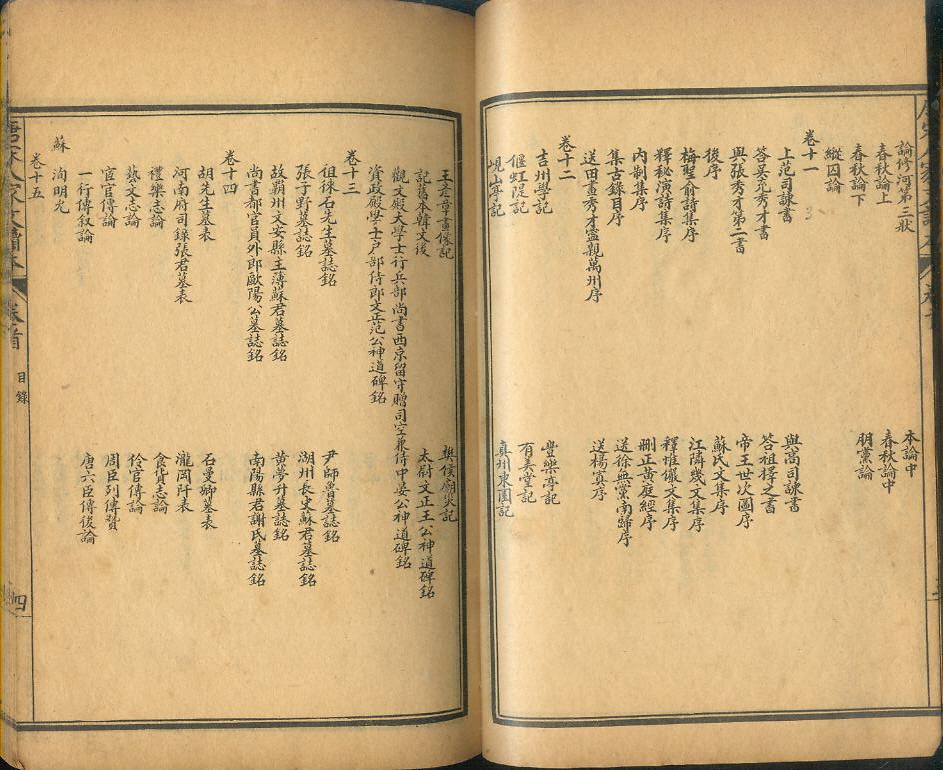 論修河第三狀 本論中
春秋論上 春秋論中
春秋論下 朋黨論
縱囚論
卷十一
上范司諫書 與高司諫書
答吳充秀才書 答祖擇之書
與張秀才第二書 帝王世次圖序
後序 蘇氏文集序
梅聖俞詩集序 江鄰幾文集序
釋秘演詩集序 釋惟儼文集序
內制集序 刪正黃庭經序
集古錄目序 送徐無黨南歸序
送田畫秀才寧親萬州序 送楊寘序
卷十二
吉州學記 豐樂亭記
偃虹隄記 有美堂記
峴山亭記 真州東園記
王彥章畫像記 樊侯廟災記
記舊本韓文後 太尉文正王公神道碑銘
觀文殿大學士行兵部尚書西京留守贈司空兼侍中晏公神道碑銘
資政殿學士戶部侍郎文正范公神道碑銘
卷十三
徂徠石先生墓誌銘 尹師魯墓誌銘
張子野墓誌銘 湖州長史蘇君墓誌銘
故霸州文安縣主簿蘇君墓誌銘 黃夢升墓誌銘
尚書都官員外郎歐陽公墓誌銘 南陽縣君謝氏墓誌銘
卷十四
胡先生墓表 石曼卿墓表
河南府司錄張君墓表 瀧岡阡表
禮樂志論 食貨志論
藝文志論 伶官傳論
宦官傳論 周臣列傳贊
一行傳敘論 唐六臣傳後論
蘇 洵明允
卷十五
唐宋八家文讀本 卷首 目錄 四